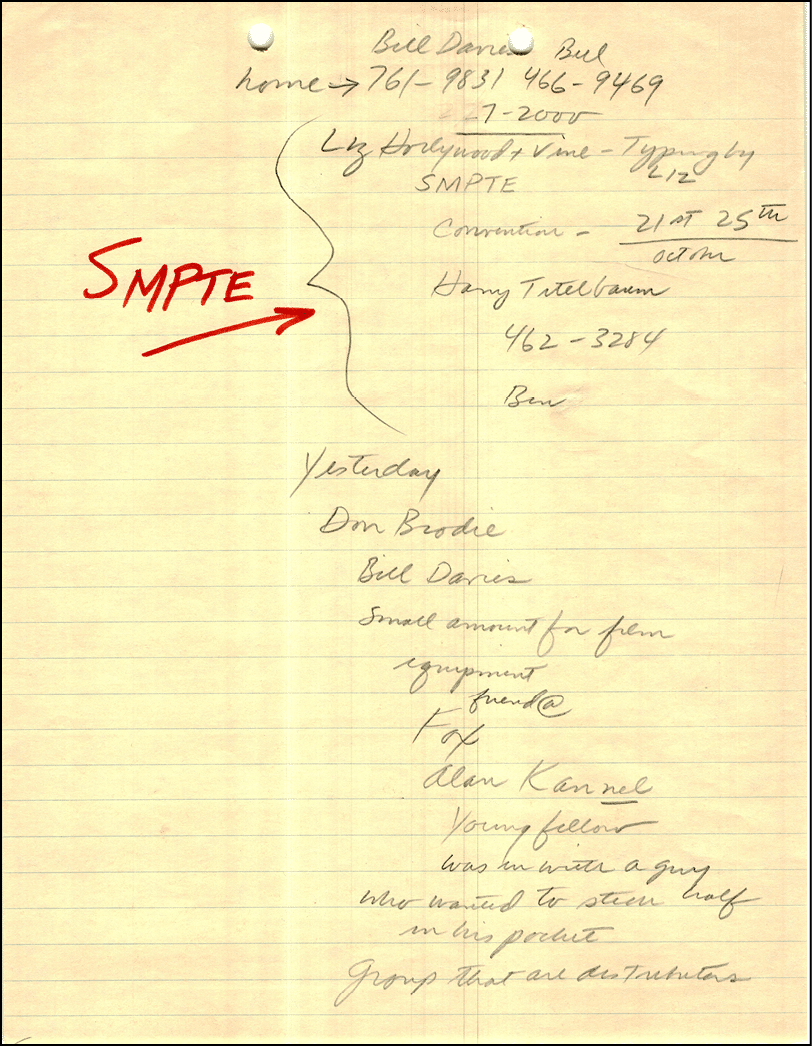 Bill Davies Bill
home → 761-9831 466-9469
7-2000
Liz Hollywood + Vine - Typing by
Liz
SMPTE
Convention - 21st 25th
SMPTE
Harry Titelbaum
462-3284
Ben
Yesterday
Don Brodie
Bill Davies
Small amount for film
equipment
friend @
Fox
Alan Kannel
Young fellow
was in with a guy
who wanted to half
in his pocket
Group that are distributors